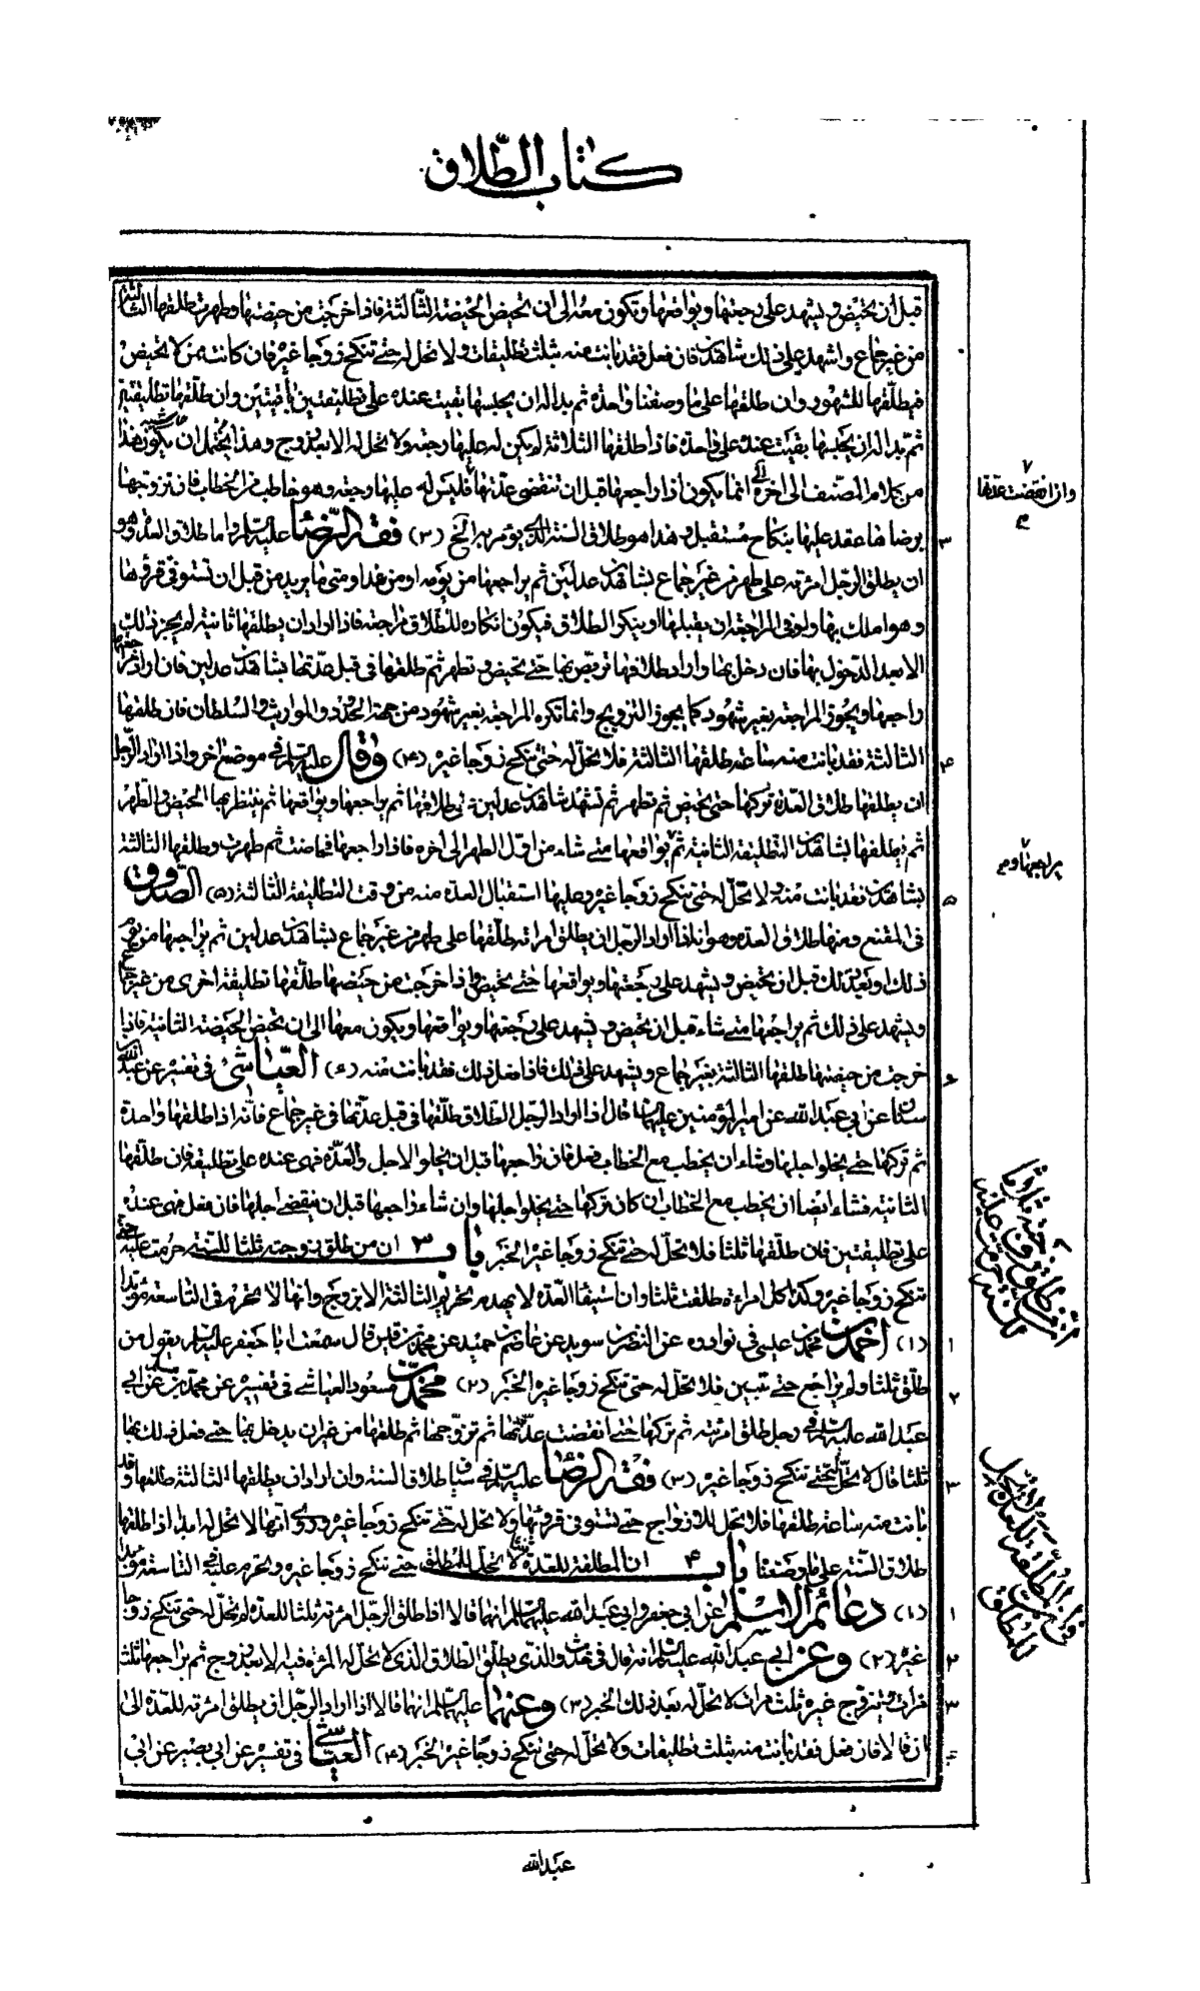 كتاب الطلاق
قبل ان تحيض ويشهد على رجعتها ويواقعها وتكون معه الى ان تحيض الحيضة الثالثة فاذا خرجت من حيضتها وطهرت طلقها الثالثة
من غير جماع واشهد على ذلك شاهدين فان فعل فقد بانت منه بثلث تطليقات ولا تحل له حتى تنكح زوجا غيره فان كانت ممن لا تحيض
فيطلقها للشهور وان طلقها على ما وصفنا واحدة ثم بدا له ان يحبسها بقيت عنده على تطليقتين باقيتين وان طلقها تطليقتين
ثم بدا له ان يحبسها بقيت عنده على واحدة فاذا طلقها الثلاثة لم يكن له عليها رجعة ولا تحل له الا بعد زوج وهذا يحتمل ان يكون هذا
من كلام المصنف الى اخره انما يكون اذا راجعها قبل ان تنقضي عدتها فليس له عليها رجعة وهو خاطب من الخطاب فان تزوجها
وان انقضت عدتها
برضاها عقد عليها بنكاح مستقبل وهذا هو طلاق السنة الذي يؤمر به الخ (٣) فقه الرضا عليه السلام واما طلاق العدة وهو
ان يطلق الرجل امرئته على طهر من غير جماع بشاهدين عدلين ثم يراجعها من يومه او من غد او متى ما يريد من قبل ان تستوفى قروها
وهو املك بها وادنى المراجعة ان يقبلها او ينكر الطلاق فيكون انكاره للطلاق مراجعة فاذا اراد ان يطلقها ثانية لم يجز ذلك
الا بعد الدخول بها فان دخل بها واراد طلاقها تربص بها حتى تحيض وتطهر ثم طلقها في قبل عدتها بشاهدين عدلين فان اراد مراجعتها
راجعها ويجوز المراجعة بغير شهود كما يجوز التزويج وانما تكره المراجعة بغير شهود من جهة الحدود والمواريث والسلطان فان طلقها
الثالثة فقد بانت منه ساعة طلقها الثالثة فلا تحل له حتى تنكح زوجا غيره (٤) وقال عليه السلام في موضع اخر واذا اراد الرجل
ان يطلقها طلاق العدة تركها حتى تحيض ثم تطهر ثم تشهد شاهدين عدلين على طلاقها ثم يراجعها ويواقعها ثم ينتظر بها الحيض والطهر
ثم يطلقها بشاهدين التطليقة الثانية ثم يواقعها متى شاء من اول الطهر الى اخره فاذا راجعها فحاضت ثم طهرت وطلقها الثالثة
يراجعها و
بشاهدين فقد بانت منه ولا تحل له حتى تنكح زوجا غيره وعليها استقبال العدة منه من وقت التطليقة الثالثة (٥) الصدوق
في المقنع ومنها طلاق العدة وهو انه اذا اراد الرجل ان يطلق امراته طلقها على طهر من غير جماع بشاهدين عدلين ثم يراجعها من يومه
ذلك او بعد ذلك قبل ان تحيض ويشهد على رجعتها ويواقعها حتى تحيض واذا خرجت من حيضها طلقها تطليقة اخرى من غير جماع
ويشهد على ذلك ثم يراجعها متى شاء قبل ان تحيض ويشهد على رجعتها ويواقعها ويكون معها الى ان تحيض الحيضة الثانية فاذا
خرجت من حيضتها طلقها الثالثة بغير جماع ويشهد على ذلك فاذا فعل ذلك فقد بانت منه (٦) العياشي في تفسيره عن عبد الله بن
سنان عن ابي عبد الله عن امير المؤمنين عليهما السلام قال اذا اراد الرجل الطلاق طلقها في قبل عدتها في غير جماع فانه اذا طلقها واحدة
ثم تركها حتى يخلو اجلها وشاء ان يخطب مع الخطاب فعل فان راجعها قبل ان يخلو الاجل والعدة فهي عنده على تطليقة فان طلقها
الثانية فشاء ايضا ان يخطب مع الخطاب ان كان تركها حتى يخلو اجلها وان شاء راجعها قبل ان ينقضي اجلها فان فعل فهي عنده
على تطليقتين فان طلقها ثلثا فلا تحل له حتى تنكح زوجا غيره الخبر باب ٣ ان من طلق زوجته ثلثا للسنة حرمت عليه حتى
تنكح زوجا غيره وكذا كل امراءة طلقت ثلثا وان استيفاء العدة لا يهدم تحريم الثالثة الا بزوج وانها لا تحرم في التاسعة مؤبدا
(١) احمد بن محمد بن عيسى في نوادره عن النضر بن سويد عن عاصم بن حميد عن محمد بن قيس قال سمعت ابا جعفر عليه السلام يقول من
طلق ثلثا ولم يراجع حتى تبين فلا تحل له حتى تنكح زوجا غيره الخبر (٢) محمد بن مسعود العياشي في تفسيره عن محمد بن مسلم عن ابي
عبد الله عليه السلام في رجل طلق امرئته ثم تركها حتى انقضت عدتها ثم تزوجها ثم طلقها من غير ان يدخل بها حتى فعل ذلك بها
ثلثا قال لا تحل له حتى تنكح زوجا غيره (٣) فقه الرضا عليه السلام في سياق طلاق السنة وان اراد ان يطلقها الثالثة طلقها وقد
بانت منه ساعة طلقها فلا تحل للازواج حتى تستوفى قروئها ولا تحل له حتى تنكح زوجا غيره وروى انها لا تحل له ابدا اذا طلقها
طلاق السنة على ما وصفنا باب ٤ ان المطلقة للعدة ثلثا لا تحل للمطلق حتى تنكح زوجا غيره وتحرم عليه في التاسعة مؤبدا
(١) دعائم الاسلام عن ابي جعفر وابي عبد الله عليهما السلام انهما قالا اذا طلق الرجل امرئته ثلثا للعدة لم تحل له حتى تنكح زوجا
غيره (٢) وعن ابي عبد الله عليه السلام انه قال في حديث والذي يطلق الطلاق الذي لا تحل له المرئة فيه الا بعد زوج ثم يراجعها ثلث
مرات وتتزوج غيره ثلث مرات لا تحل له بعد ذلك الخبر (٣) وعنهما عليهما السلام انهما قالا اذا اراد الرجل ان يطلق امرئته للعدة الى
ان قالا فان فعل فقد بانت منه بثلث تطليقات ولا تحل له حتى تنكح زوجا غيره الخبر (٤) العياشي في تفسيره عن ابي بصير عن ابي
عبد الله